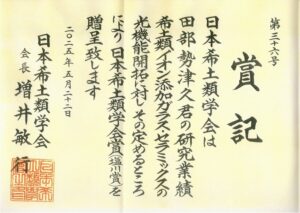 第三十六号
賞記
日本希土類学会は
田部勢津久君の研究業績
希土類イオン添加ガラスセラミックスの
光機能開拓に対しその定めるところ
により日本希土類学会賞(塩川賞)を
贈呈致します
二〇二五年五月二十二日
日本希土類学会
会長 増井敏行